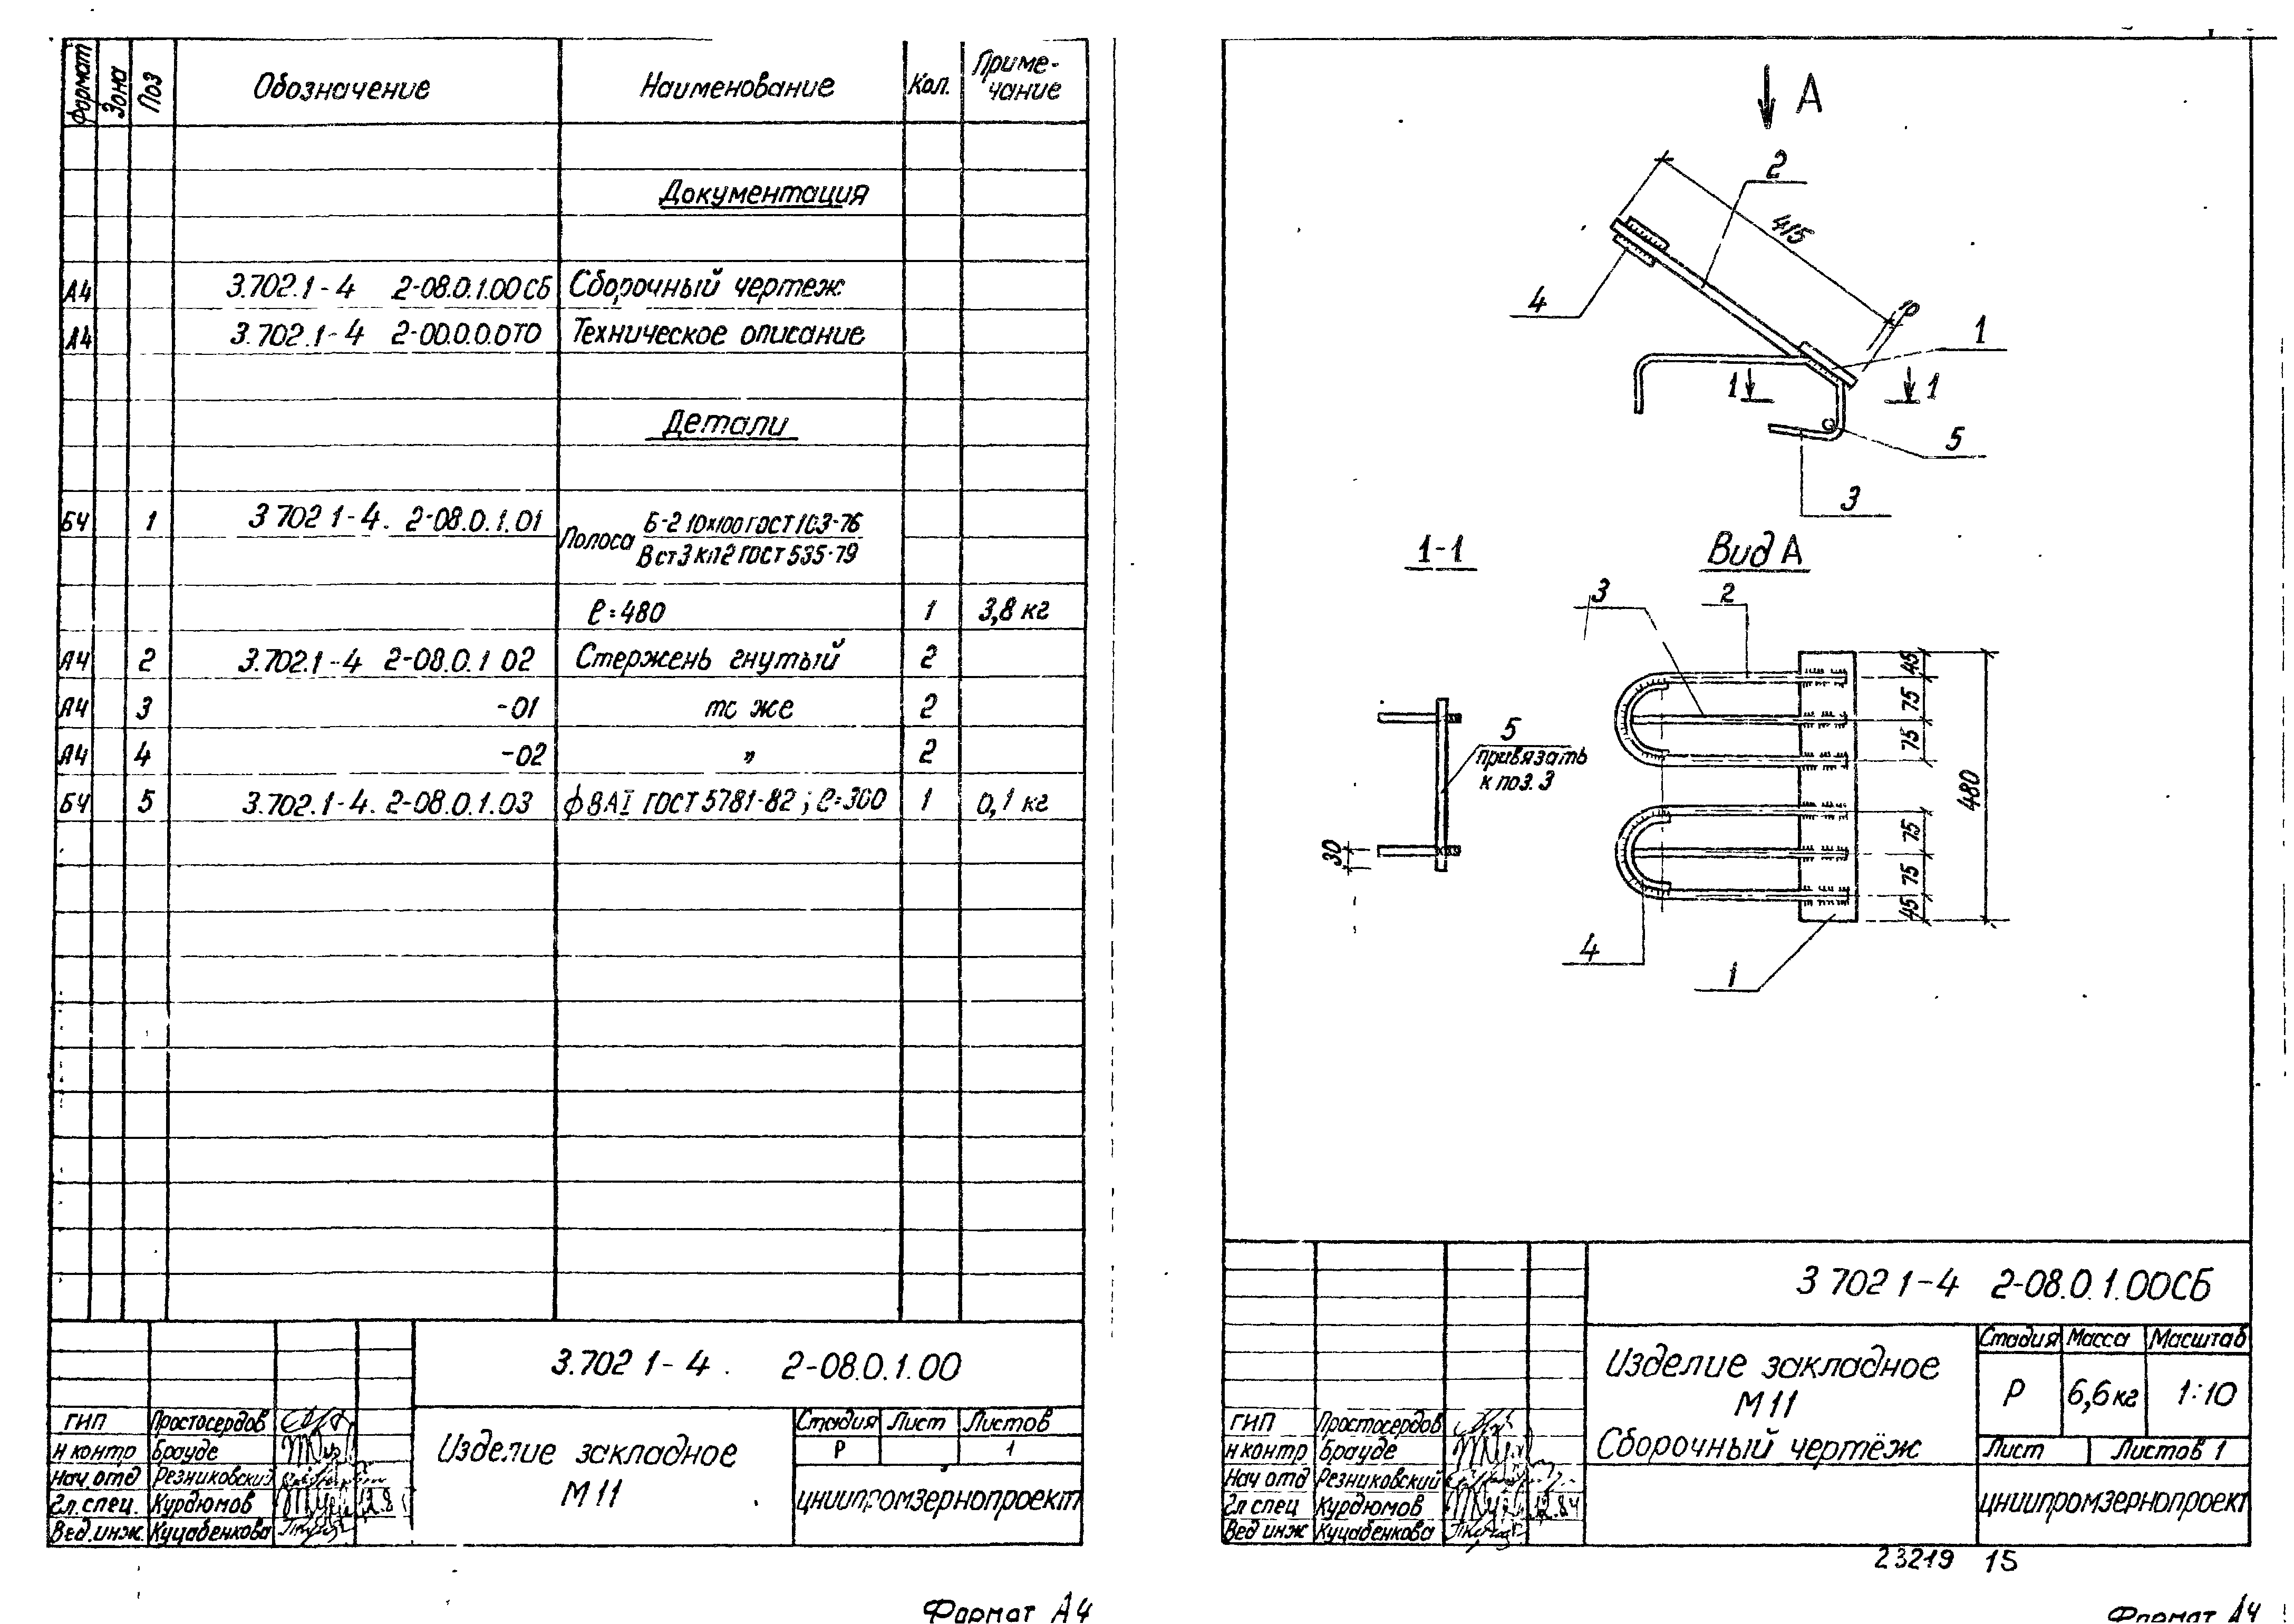 Формат Зона Поз Обозначение Наименование Кол. Приме-
чание
Документация
А4 3.702.1-4 2-08.0.1.00СБ Сборочный чертеж
А4 3.702.1-4 2-00.0.0.0ТО Техническое описание
Детали
БЧ 1 3 702 1-4. 2-08.0.1.01 Полоса Б-2 10х100 ГОСТ 103-76
В ст3 кп2 ГОСТ 535-79
ℓ=480 1 3,8 кг
А4 2 3.702.1-4 2-08.0.1 02 Стержень гнутый 2
А4 3 -01 то же 2
А4 4 -02 " 2
БЧ 5 3.702.1-4. 2-08.0.1.03 ф8АI ГОСТ 5781-82; ℓ=360 1 0,1 кг
3.702 1-4. 2-08.0.1.00
ГИП Простосердов
Н контр Брауде
Нач.отд Резниковский
Гл.спец. Курдюмов
Вед.инж. Куцабенкова
Изделие закладное
М11
Стадия Лист Листов
Р 1
ЦНИИПРОМЗЕРНОПРОЕКТ
Формат А4
А
2
415
4
10
1
1 1
5
3
1-1
Вид А
3 2
5
привязать
к поз. 3
30
45
75
75
480
75
75
45
4
1
3 702 1-4 2-08.0.1.00СБ
Изделие закладное
М11
Сборочный чертёж
Стадия Масса Масштаб
Р 6,6кг 1:10
Лист Листов 1
ЦНИИПРОМЗЕРНОПРОЕКТ
ГИП Простосердов
Н контр Брауде
Нач отд Резниковский
Гл спец Курдюмов 12.84
Вед инж Куцабенкова
23219 15
Формат А4